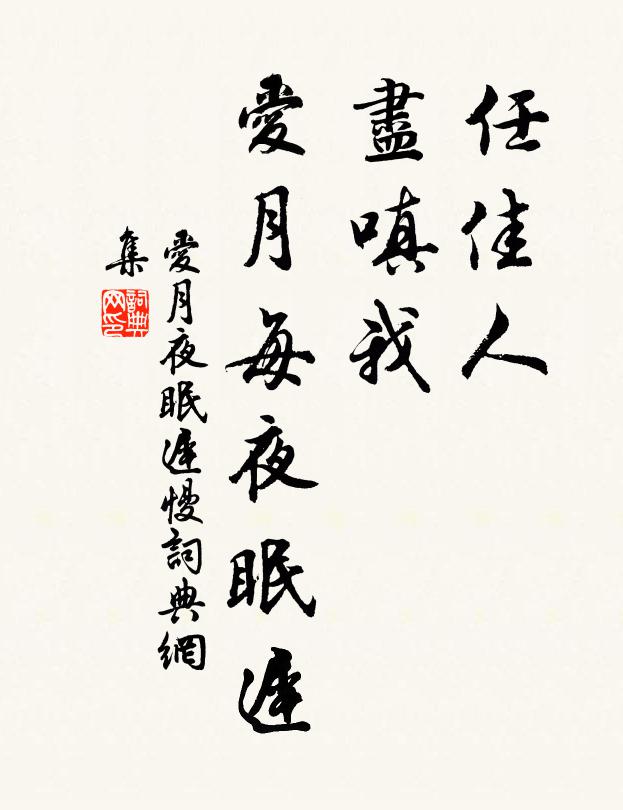 任佳人
盡嗔我
愛月每夜眠遲
愛月夜眠遲慢詞典網
集
詞典
网印